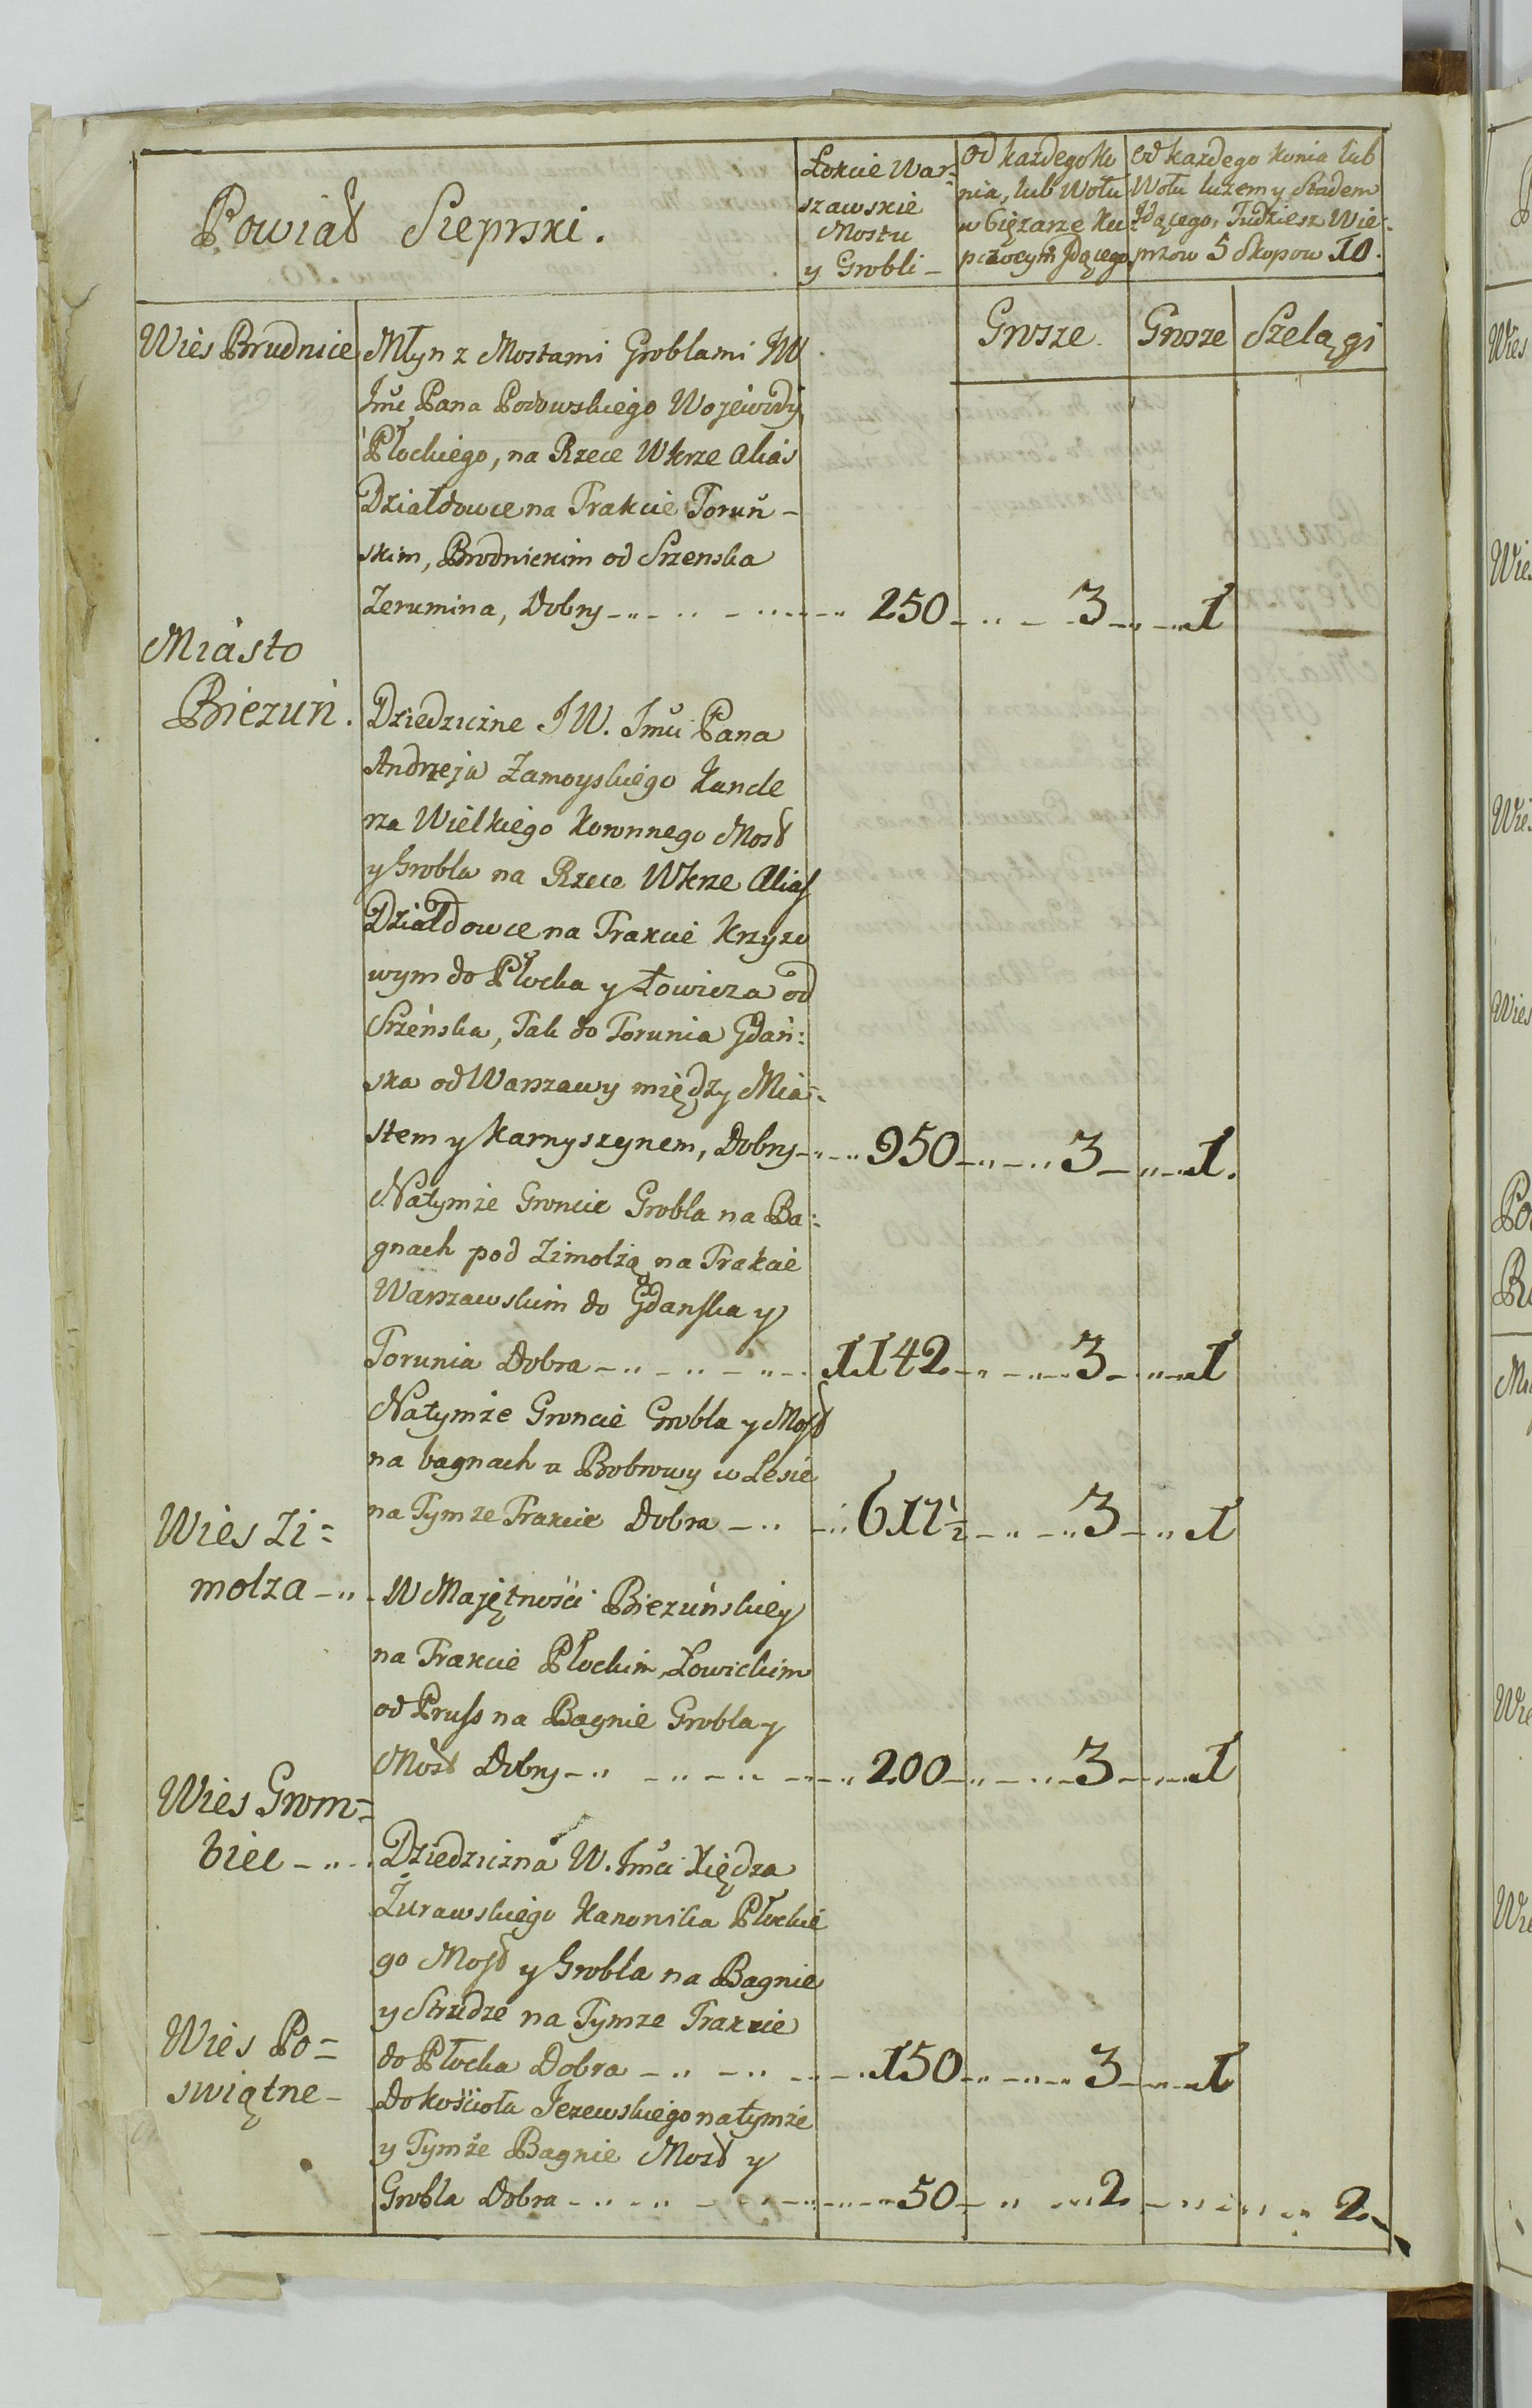 Powiat Sieprski.
Łokcie War-
szawskie
Mostu
y Grobli -
Od kazdego Ko
nia, lub Wołu
w Ciężarze Ku
pieckim Idącego
od kazdego konia lub
Wołu luzem y Stadem
Idącego, Tudziesz Wie:
przow 5 Skopow 10.
Grosze. Grosze Szelągi
Wies Brudnice Młyn z Mostami Groblami JW
Jmć Pana Podowskiego Wojewody
Płockiego, na Rzece Wkrze alias
Działdowce na Trakcie Toruń-
skim, Brodnickim od Srzenska
Zeromina, Dobry 250 3 1
Miásto
Biezuń. Dziedziczne JW. Jmći Pana
Andrzeja Zamoyskiego Kancle
rza Wielkiego Koronnego Most
y Grobla na Rzece Wkrze Alias
Działdowce na Trakcie Krzyzo
wym do Płocka y Łowicza od
Srzeńska, Tak do Torunia Gdań:
ska od Warszawy między Mia:
stem y Karnyszynem, Dobry 950 3 1.
Natymże Groncie Grobla na Ba:
gnach pod Zimolzą na Trakcie
Warszawskim do Gdanska y
Torunia Dobra 1142 3 1
Natymże Groncie Grobla y Most
na bagnach u Bobrowy w Lesie
na Tymze Trakcie Dobra 611½ 3 1
Wies Zi=
molza W Majętności Biezuńskiey
na Trakcie Płockim, Łowickim
od Pruss na Bagnie Grobla y
Most Dobry 200 3 1
Wies Grom=
biec Dziedziczna W. Jmći Xiędza
Żurawskiego Kanonika Płockie
go Most y Grobla na Bagnie
y Strudze na Tymze Trakcie
do Płocka Dobra 150 3 1
Wies Po=
swiątne- Do kościoła Jezewskiego natymże
y Tymże Bagnie Most y
Grobla Dobra 50 2 2